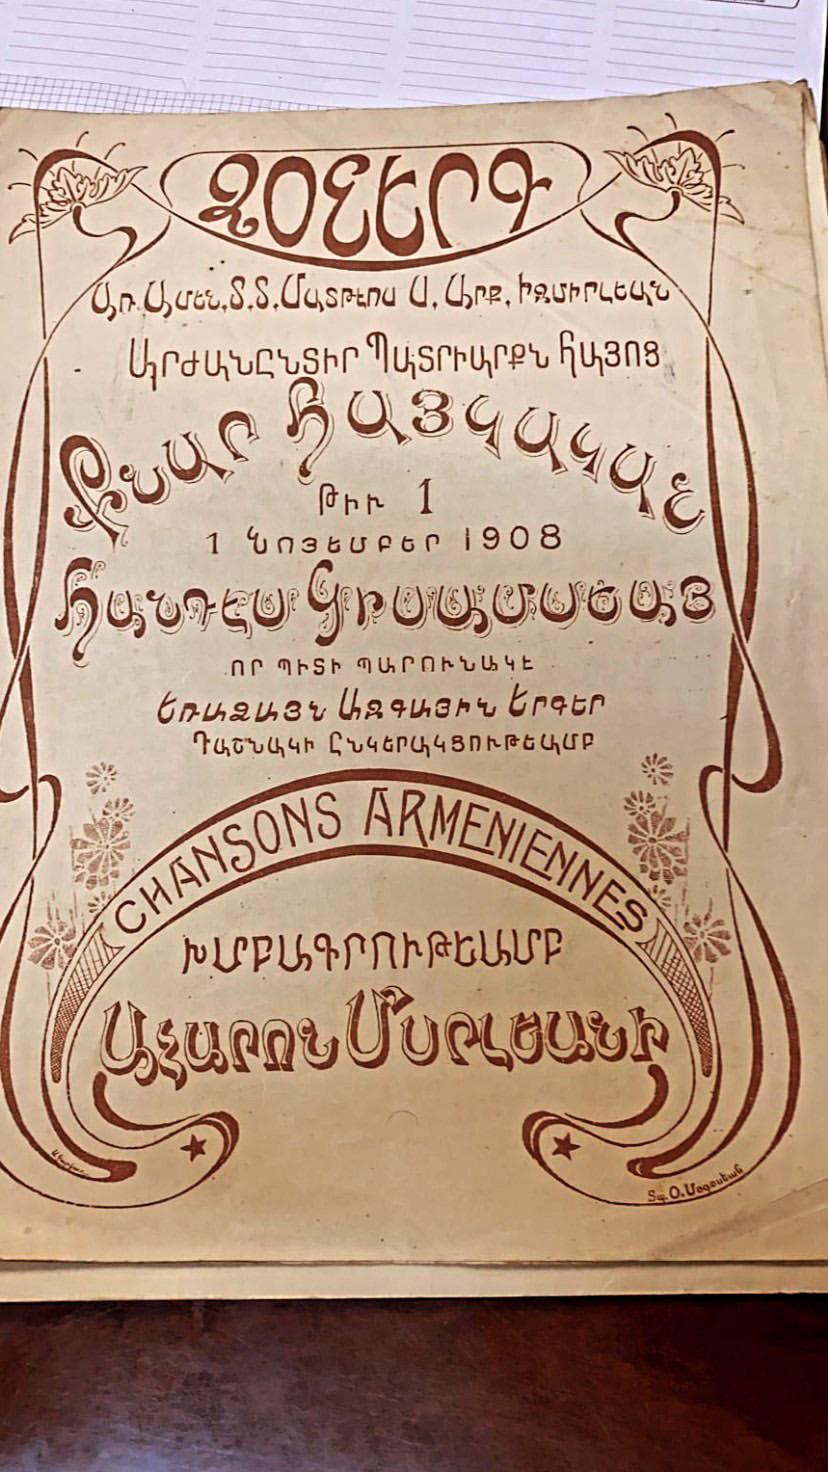 ՁՕՆԵՐԳ
Առ Ամեն. Տ. Տ. Մատթէոս Ա. Արք. Իզմիրլեան
Արժանընտիր Պատրիարքն Հայոց
Քնար Հայկական
Թիւ 1
1 Նոյեմբեր 1908
Հանդէս Կիսամսեայ
որ պիտի պարունակէ
Եռաձայն Ազգային Երգեր
Դաշնակի Ընկերակցութեամբ
CHANSONS ARMENIENNES
Խմբագրութեամբ
Ահարոն Մսրլեանի
Տպ. Օ. Մօգօսեան